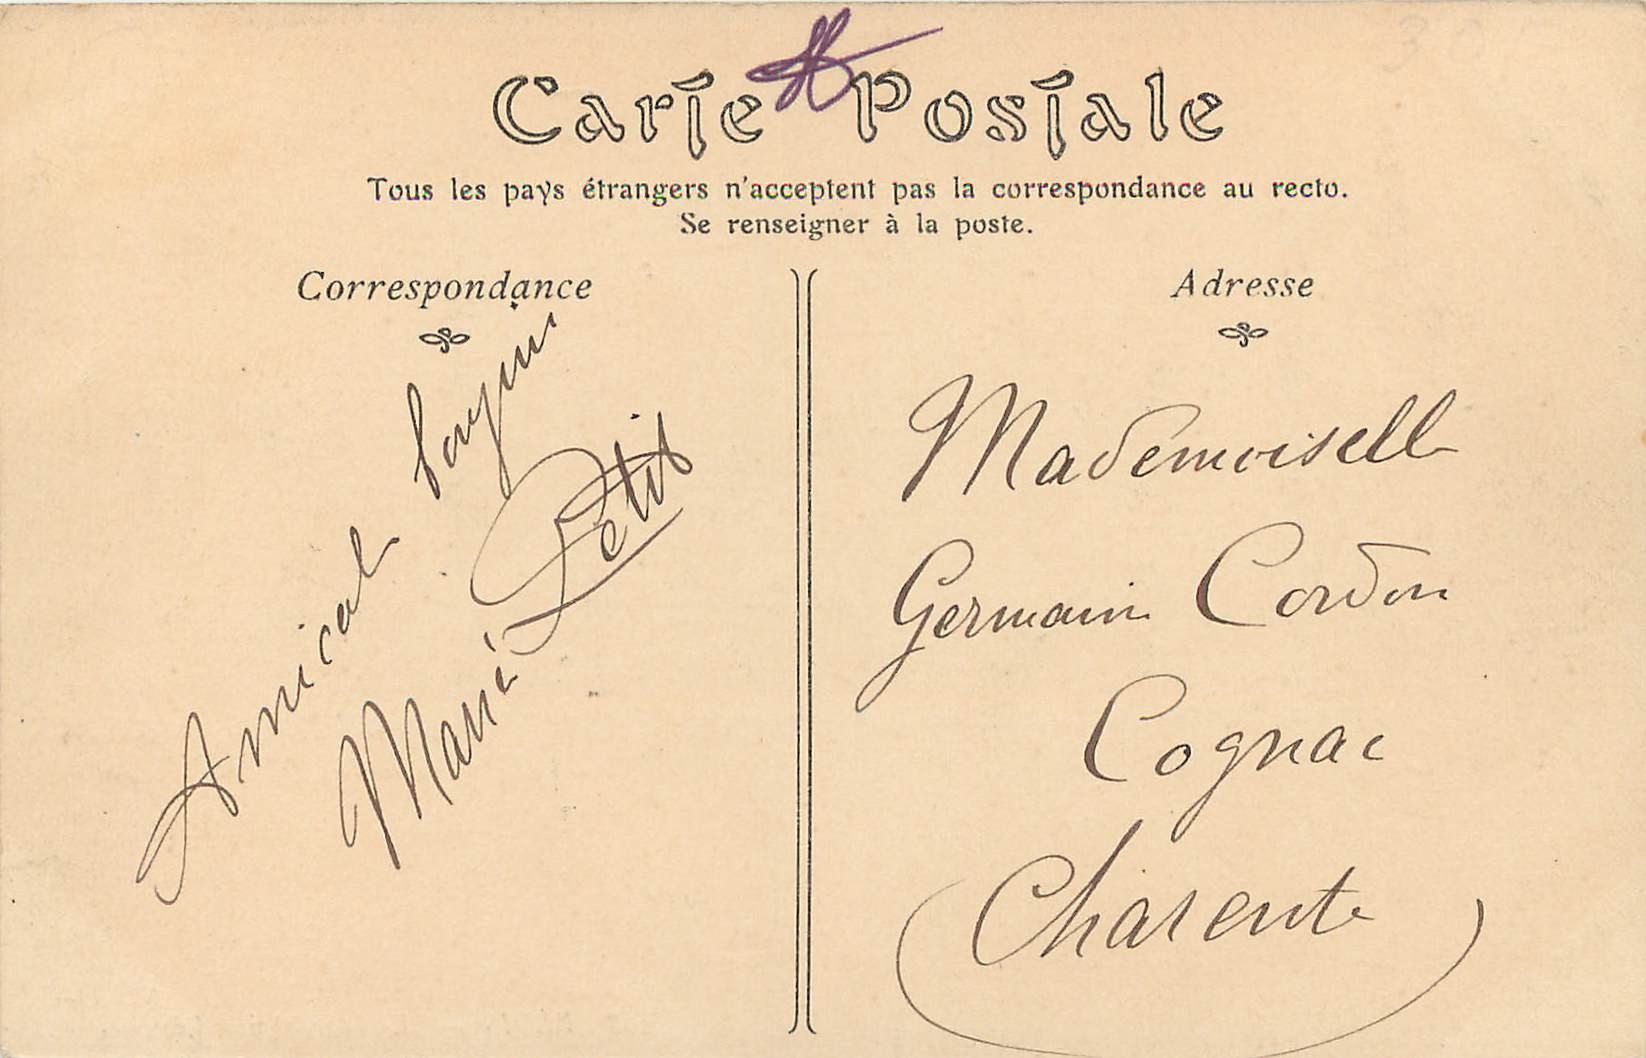 Carte Postale
Tous les pays étrangers n'acceptent pas la correspondance au recto.
Se renseigner à la poste.
Correspondance
Amical
Marie Petit
Adresse
Mademoiselle
Germain Cordon
Cognac
Charente